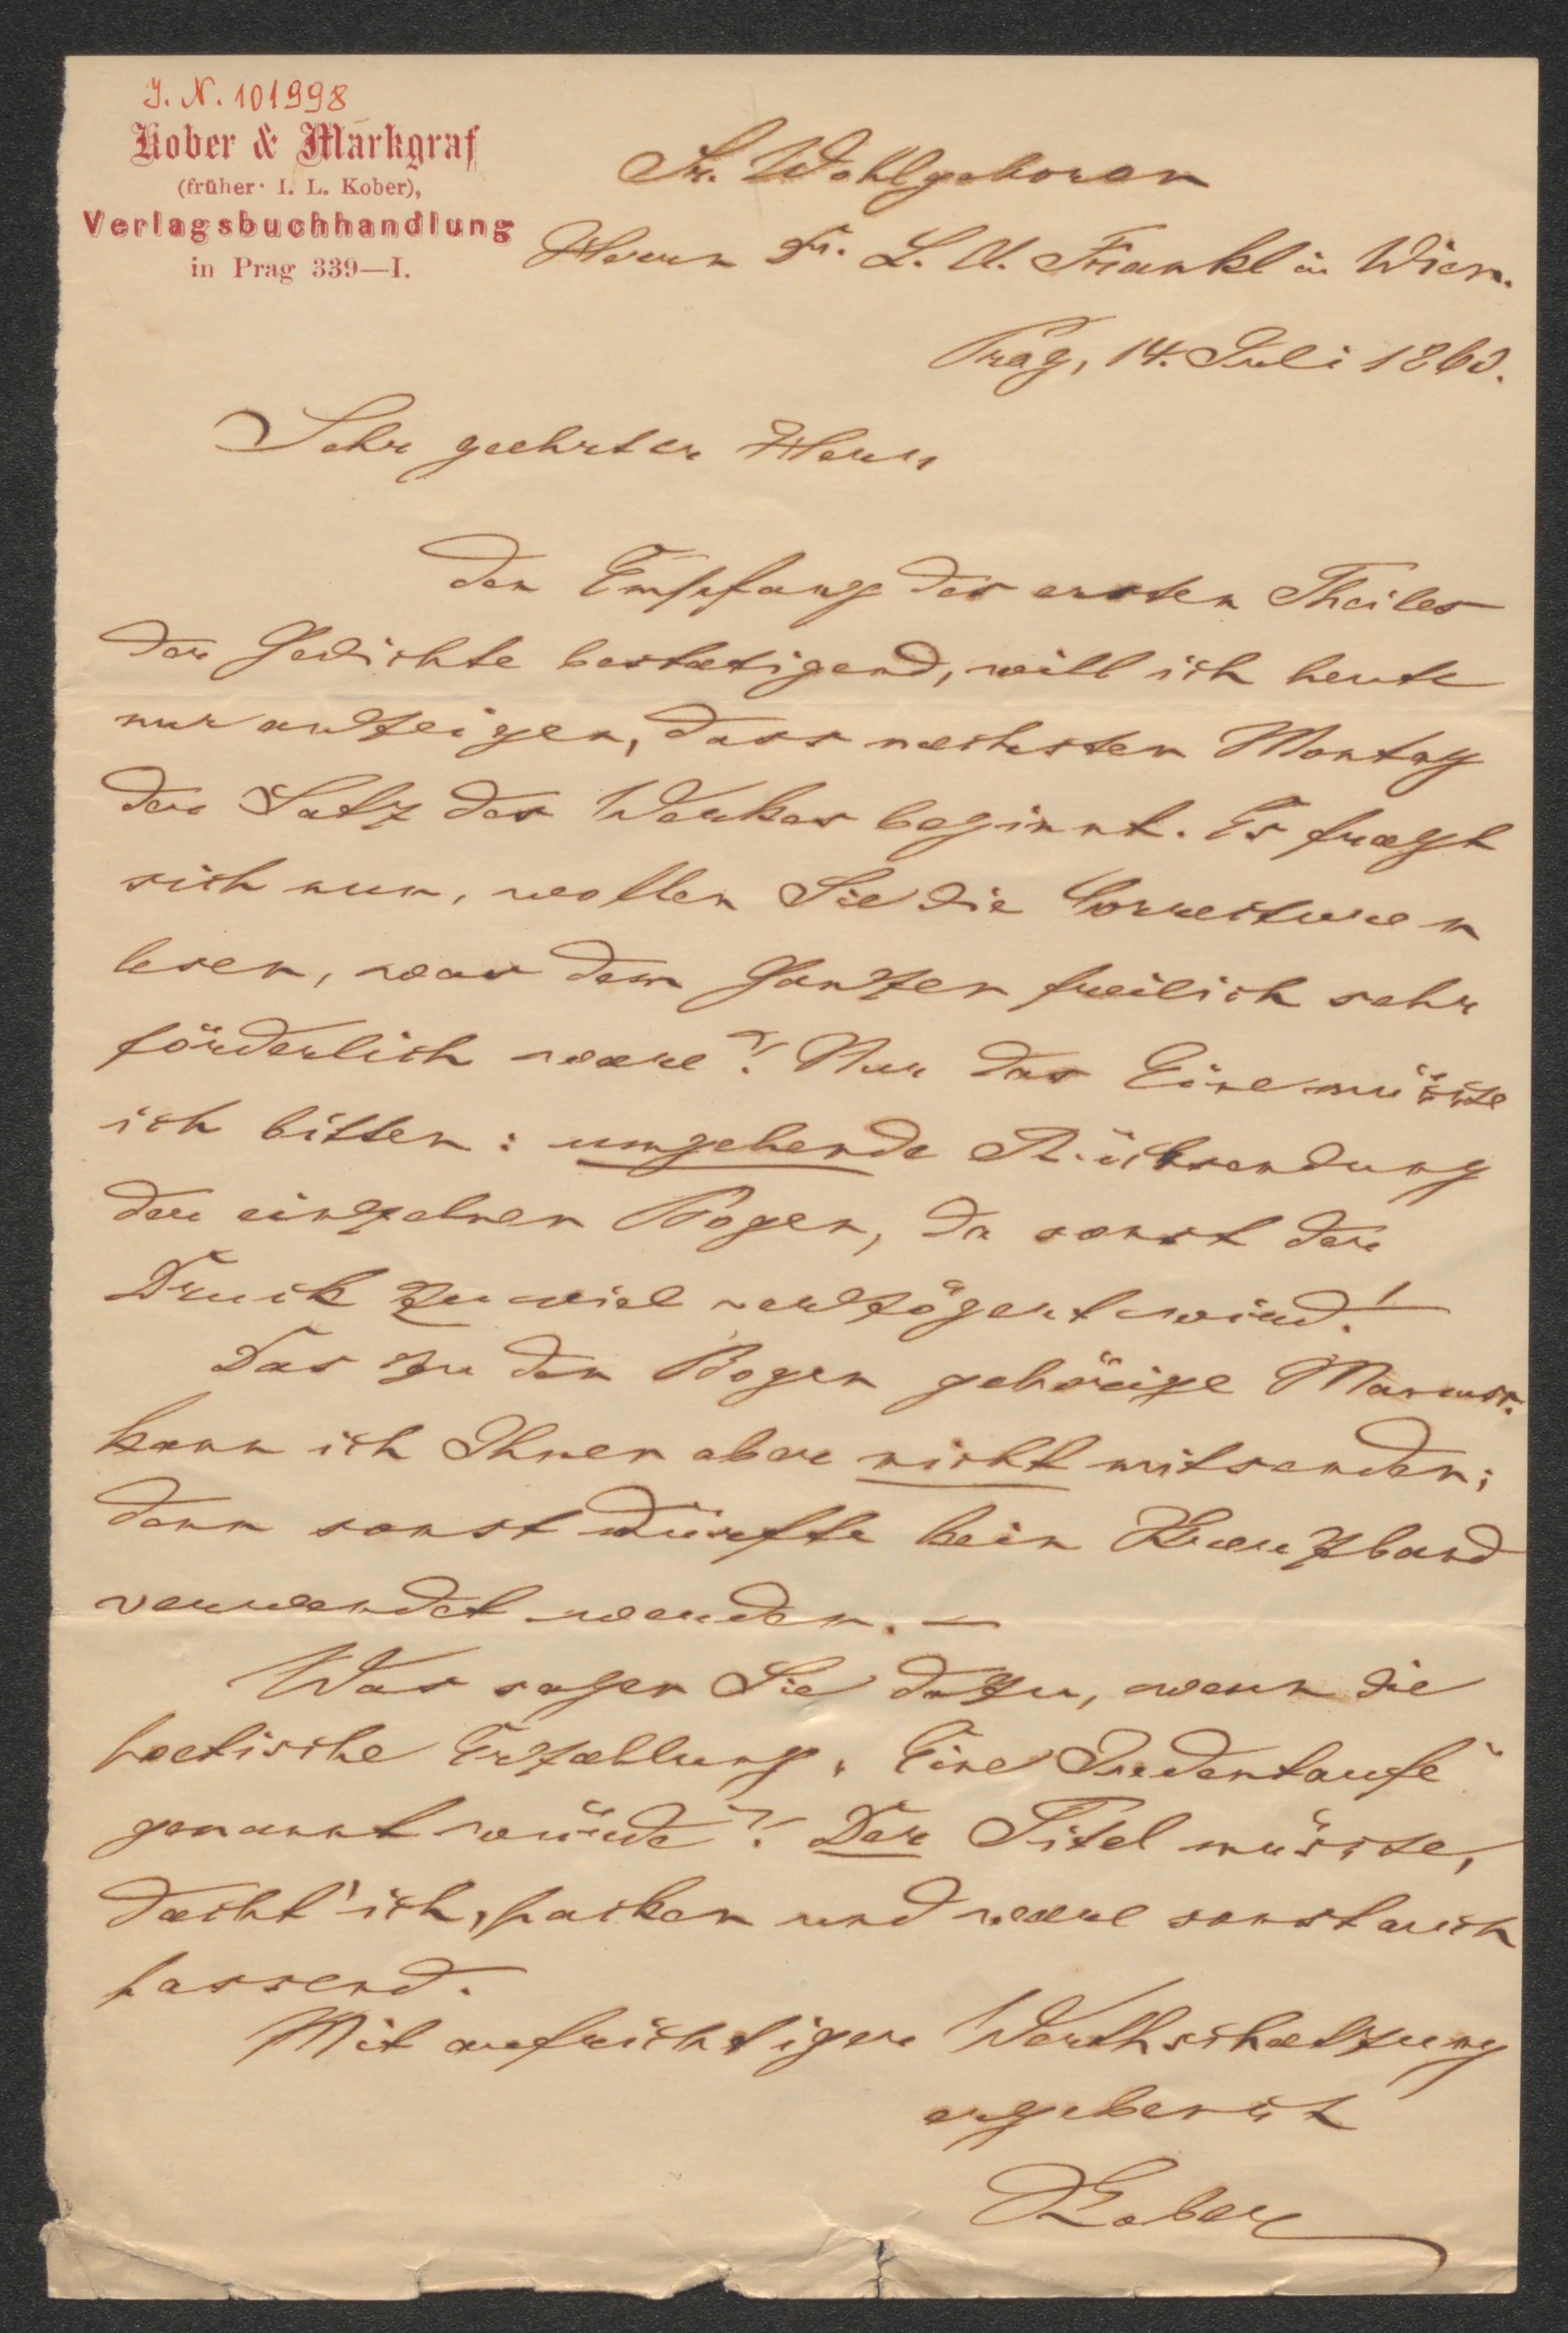 J. N. 101998
Kober & Markgraf
(früher I. L. Kober),
Verlagsbuchhandlung
in Prag 339—I.
Sr. Wohlgeboren
Herrn Dr. L. A. Frankl in Wien.
Prag, 14. Juli 1860.
Sehr geehrter Herr
Den Empfang des ersten Theiles
der Gedichte bestaetigend, will ich heute
nur anzeigen, dass naechsten Montag
der Satz des Werkes beginnt. Es fraegt
sich nun, wollen Sie die Correcturen
lesen, was dem Ganzen freilich sehr
förderlich waere? Nur das Eine müsste
ich bitten: umgehende Rücksendung
der einzelnen Bogen, da sonst der
Druck zu viel verzögert wird!—
Das zu den Bogen gehörige Manusr.
kann ich Ihnen aber nicht mitsenden;
denn sonst dürfte kein Kreuzband
verwendet werden. —
Was sagen Sie dazu, wenn die
poetische Erzaehlung „Eine Judentaufe"
genannt würde? Der Titel müsste,
daecht' ich, packen und waere sonst auch
passend.
Mit aufrichtiger Werthschaetzung
ergebenst
Kober